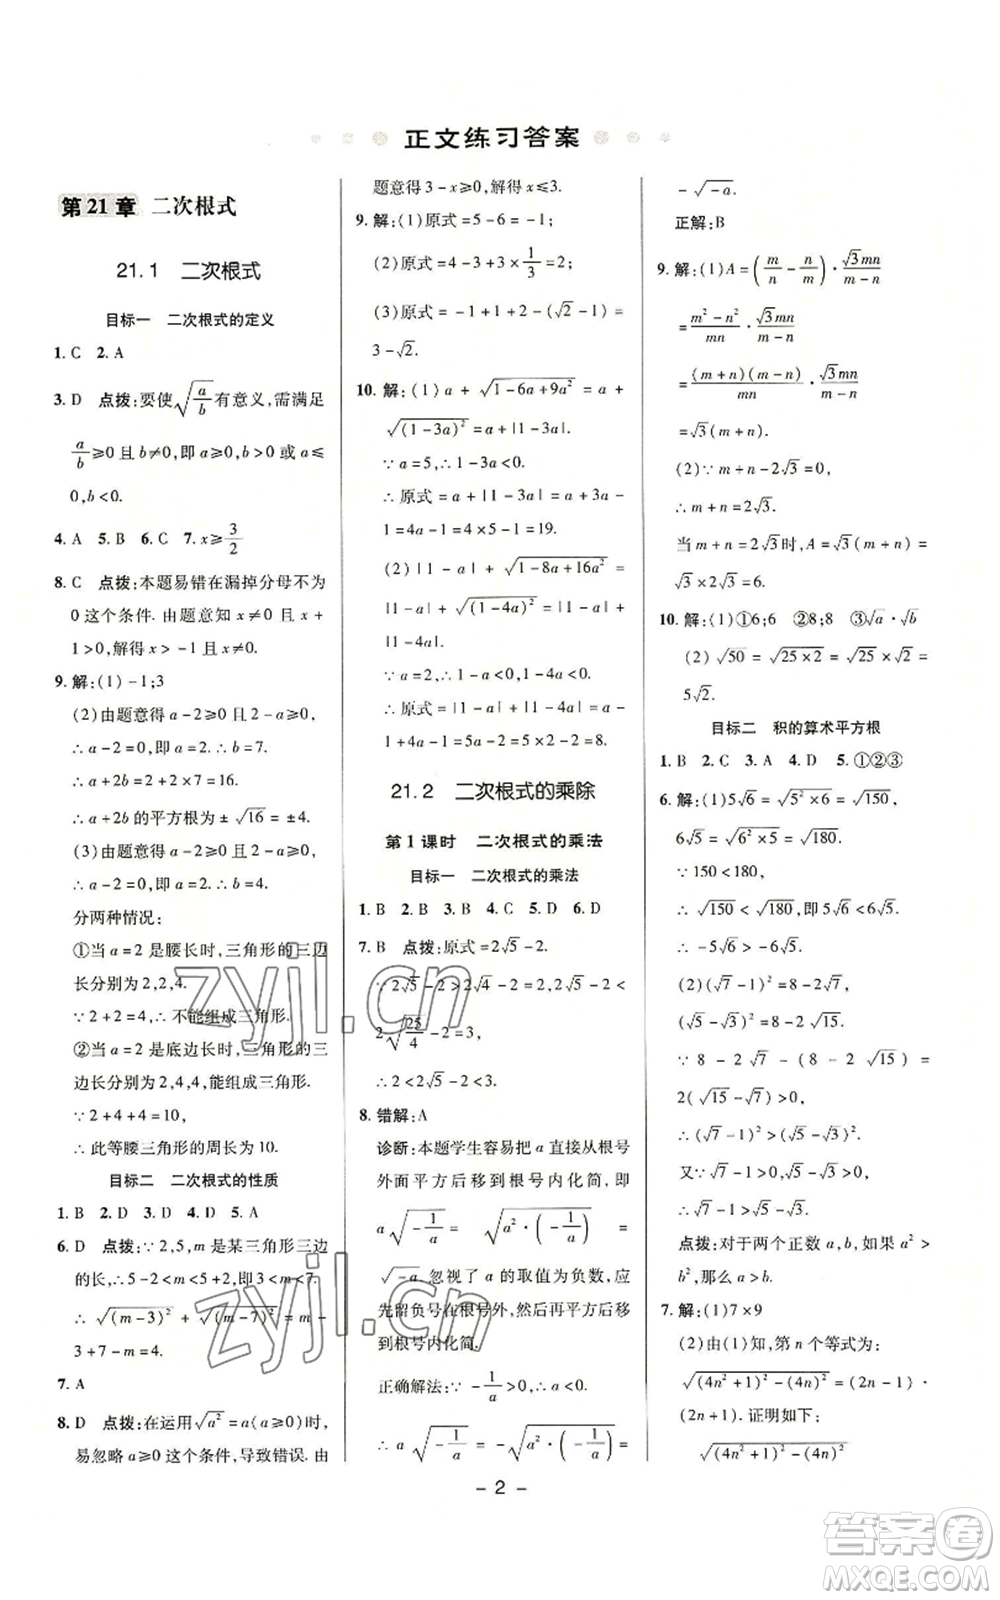 正文练习答案
第 21 章 二次根式
21.1 二次根式
目标一 二次根式的定义
1. C 2. A
3. D 点拨:要使√(a/b)有意义,需满足
a/b≥0 且 b≠0,即 a≥0,b>0 或 a≤
0,b<0.
4. A 5. B 6. C 7. x≥3/2
8. C 点拨:本题易错在漏掉分母不为
0 这个条件. 由题意知 x≠0 且 x+
1>0,解得 x>-1 且 x≠0.
9. 解:(1)-1;3
(2)由题意得 a-2≥0 且 2-a≥0,
∴a-2=0,b=7.
∴a+2b=2+2×7=16.
∴a+2b 的平方根为±√16=±4.
(3)由题意得 a-2≥0 且 2-a≥0,
∴a-2=0,∴a=2,b=4.
分两种情况:
①当 a=2 是腰长时,三角形的三边
长分别为 2,2,4.
∵2+2=4,∴不能组成三角形.
②当 a=2 是底边长时,三角形的三
边长分别为 2,4,4,能组成三角形.
∵2+4+4=10,
∴此等腰三角形的周长为 10.
目标二 二次根式的性质
1. B 2. D 3. D 4. D 5. A
6. D 点拨:∵2,5,m 是某三角形三边
的长,∴5-2<m<5+2,即 3<m<7.
∴√((m-3)²)+√((m-7)²)=m-
3+7-m=4.
7. A
8. D 点拨:在运用√(a²)=a(a≥0)时,
易忽略 a≥0 这个条件,导致错误. 由
题意得 3-x≥0,解得 x≤3.
9. 解:(1)原式=5-6=-1;
(2)原式=4-3+3×1/3=2;
(3)原式=-1+1+2-(√2-1)=
3-√2.
10. 解:(1)a+√(1-6a+9a²)=a+
√((1-3a)²)=a+|1-3a|.
∵a=5,∴1-3a<0.
∴原式=a+|1-3a|=a+3a-
1=4a-1=4×5-1=19.
(2)|1-a|+√(1-8a+16a²)=
|1-a|+√((1-4a)²)=|1-a|+
|1-4a|.
∵a=2,∴1-a<0,1-4a<0.
∴原式=|1-a|+|1-4a|=a-
1+4a-1=5a-2=5×2-2=8.
21.2 二次根式的乘除
第 1 课时 二次根式的乘法
目标一 二次根式的乘法
1. B 2. B 3. B 4. C 5. D 6. D
7. B 点拨:原式=2√5-2.
∵2√4-2<2√5-2<
2√(25/4)-2=3,
∴2<2√5-2<3.
8. 错解:A
诊断:本题学生容易把 a 直接从根号
外面平方后移到根号内化简,即
a√(-1/a)=√(a²·(-1/a))=
√(-a),忽视了 a 的取值为负数,应
先留负号在根号外,然后平方后移
到根号内化简.
正确解法:∵-1/a>0,∴a<0.
∴a√(-1/a)=-√(a²·(-1/a))=
-√(-a).
正解:B
9. 解:(1)A=(m/n-n/m)·√3mn/(m-n)
=(m²-n²)/mn·√3mn/(m-n)
=(m+n)(m-n)/mn·√3mn/(m-n)
=√3(m+n).
(2)∵m+n-2√3=0,
∴m+n=2√3.
当 m+n=2√3时,A=√3(m+n)=
√3×2√3=6.
10. 解:(1)①6;6 ②8;8 ③√a·√b
(2)√50=√(25×2)=√25×√2=
5√2.
目标二 积的算术平方根
1. B 2. C 3. A 4. D 5. ①②③
6. 解:(1)5√6=√(5²×6)=√150,
6√5=√(6²×5)=√180.
∵150<180,
∴√150<√180,即 5√6<6√5.
∴-5√6>-6√5.
(2)(√7-1)²=8-2√7,
(√5-√3)²=8-2√15.
∵8-2√7-(8-2√15)=
2(√15-√7)>0,
∴(√7-1)²>(√5-√3)².
又∵√7-1>0,√5-√3>0,
∴√7-1>√5-√3.
点拨:对于两个正数 a,b,如果 a²>
b²,那么 a>b.
7. 解:(1)7×9
(2)由(1)知,第 n 个等式为:
√((4n²+1)²-(4n²-1)²)=(2n-1)·
(2n+1). 证明如下:
√((4n²+1)²-(4n²-1)²)
- 2 -
zyjl.cn
zyjl.cn
答案圈
MXQE.COM